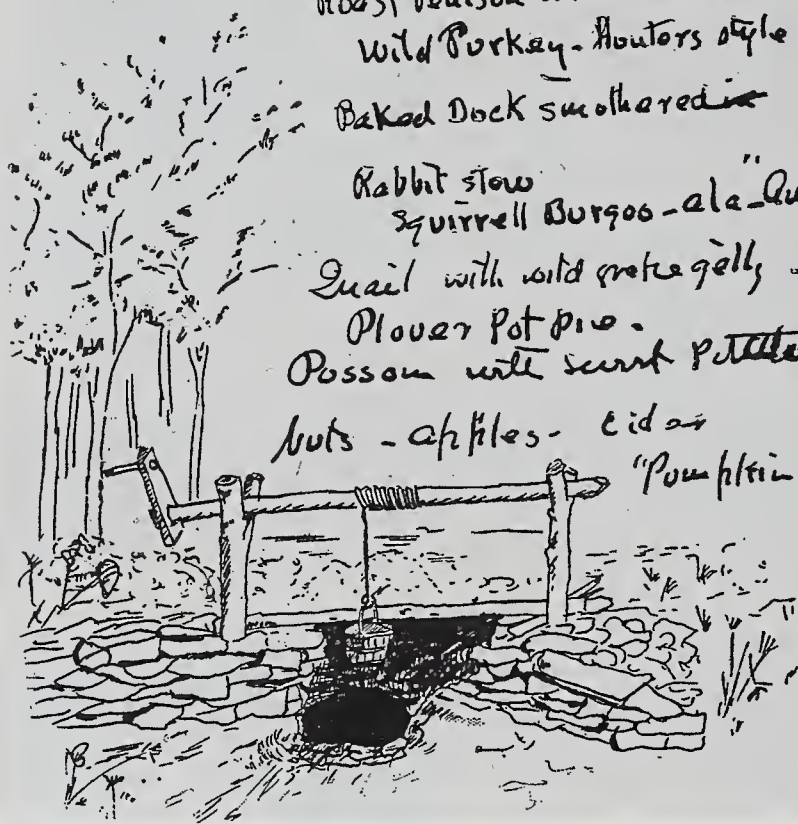 Roast Venison
Wild Turkey - Hunters style
Baked Duck smothered in
Rabbit stew
Squirrell Burgoo - ala - "Au
Quail with wild grape gelly -
Plover Pot Pie.
Possom with sweet
Nuts - apples - Cider
"Pumpkin